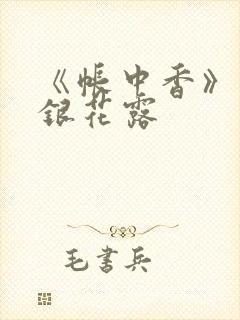 《帐中香》
银花露
毛書兵